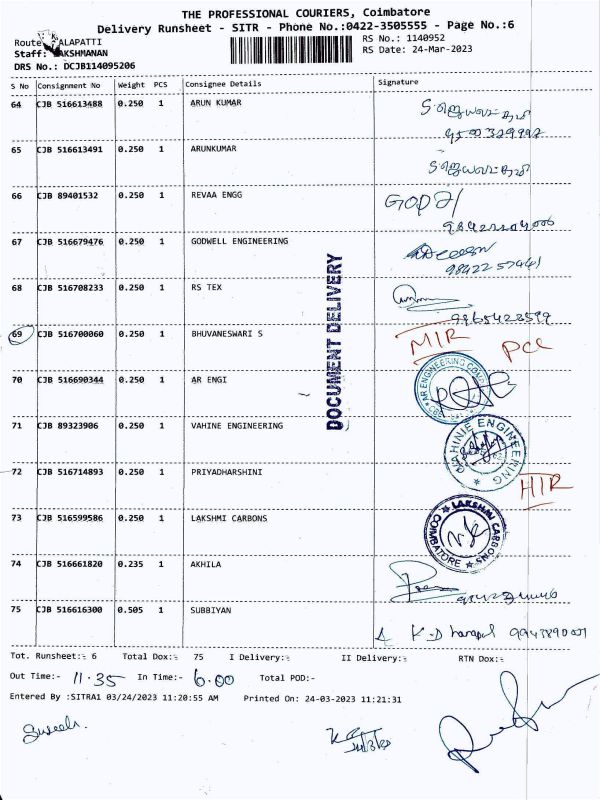 THE PROFESSIONAL COURIERS, Coimbatore
Delivery Runsheet - SITR - Phone No.:0422-3505555 - Page No.:6
Route ALAPATTI
RS No.: 1140952
Staff: AKSHMANAN
RS Date: 24-Mar-2023
DRS No.: DCJB114095206
S No Consignment No Weight PCS Consignee Details Signature
64 CJB 516613488 0.250 1 ARUN KUMAR
65 CJB 516613491 0.250 1 ARUNKUMAR
66 CJB 89401532 0.250 1 REVAA ENGG
67 CJB 516679476 0.250 1 GODWELL ENGINEERING
68 CJB 516708233 0.250 1 RS TEX
69 CJB 516700060 0.250 1 BHUVANESWARI S MIR PCC
70 CJB 516690344 0.250 1 AR ENGI
71 CJB 89323906 0.250 1 VAHINE ENGINEERING
72 CJB 516714893 0.250 1 PRIYADHARSHINI HIR
73 CJB 516599586 0.250 1 LAKSHMI CARBONS
LAKSHMI CARBONS COIMBATORE
74 CJB 516661820 0.235 1 AKHILA
75 CJB 516616300 0.505 1 SUBBIYAN
DOCUMENT DELIVERY
Tot. Runsheet:- 6 Total Dox:- 75 I Delivery:- II Delivery:- RTN Dox:-
Out Time:- 11.35 In Time:- 6.00 Total POD:-
Entered By :SITRA1 03/24/2023 11:20:55 AM Printed On: 24-03-2023 11:21:31